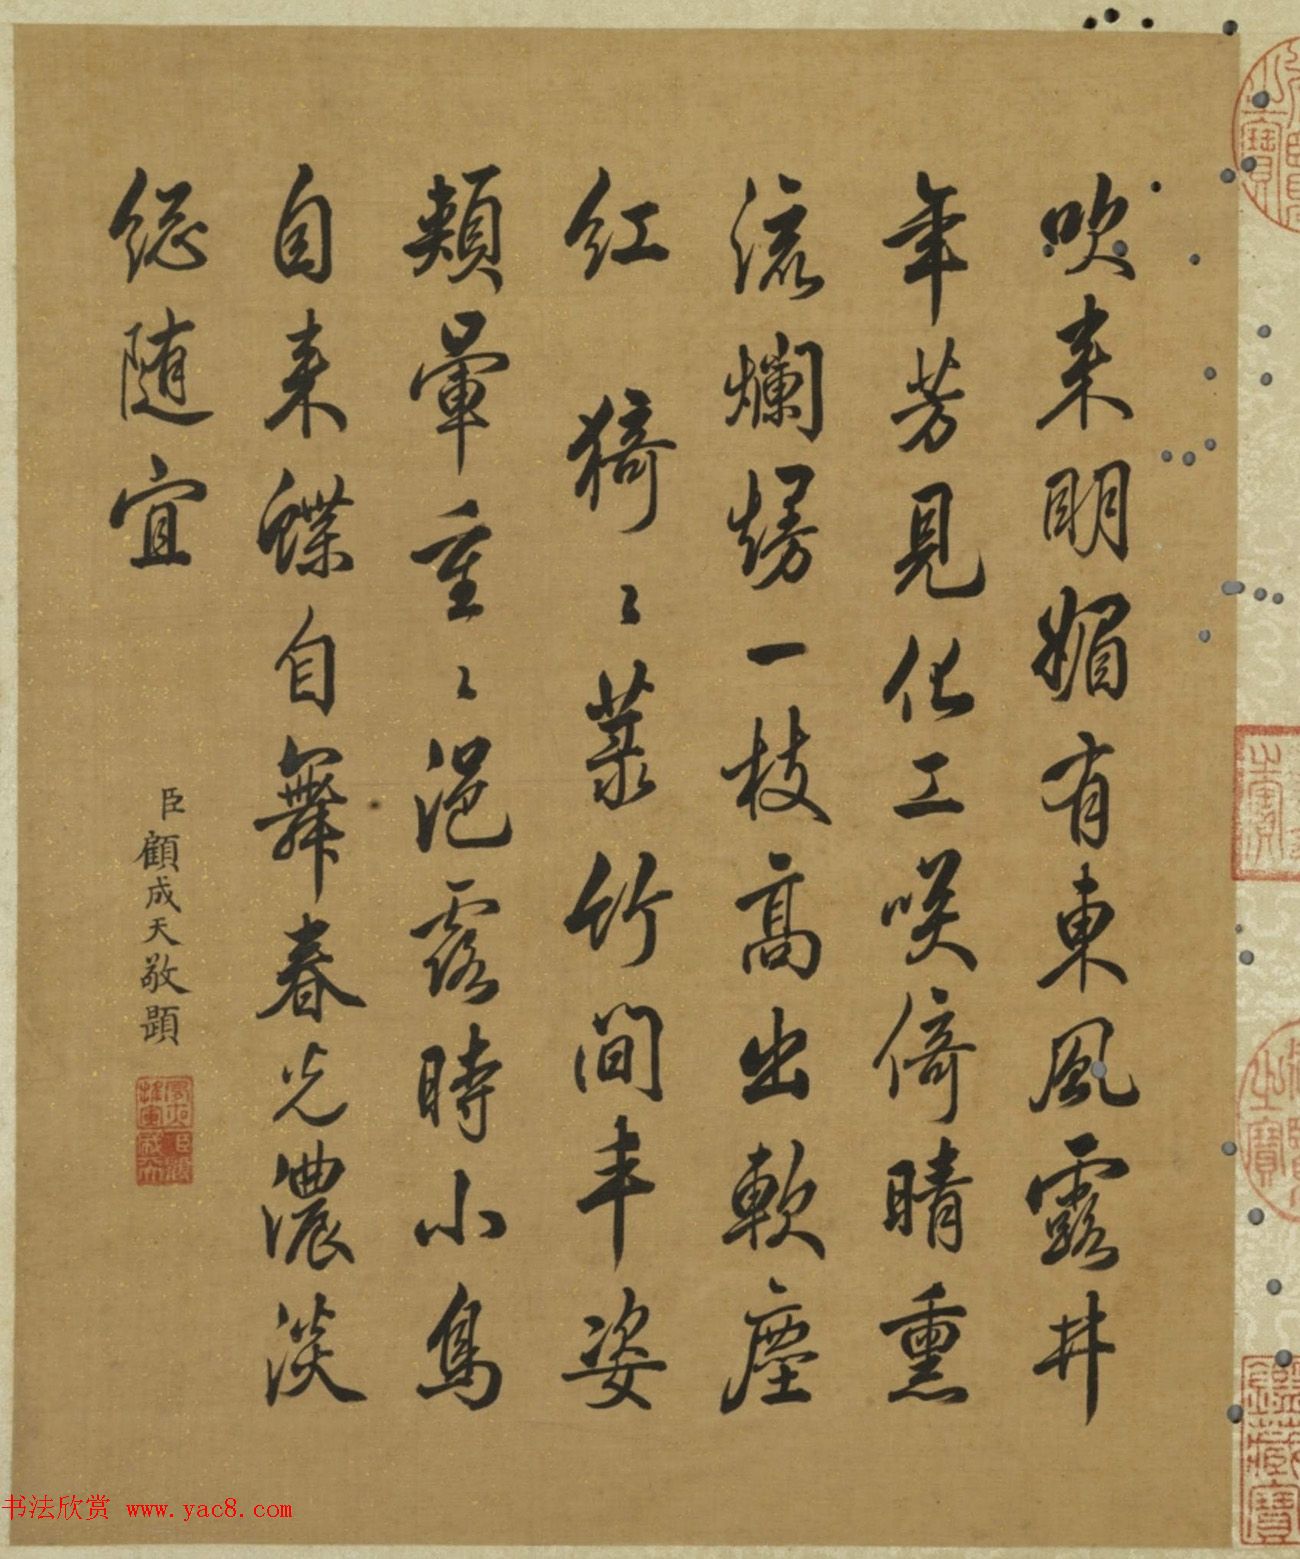 吹来明媚有東風露井
年芳見化工咲倚晴熏
流爛熳一枝髙出軟塵
红 猗〻菉竹间丰姿
頰暈重〻浥露時小鳥
自来蝶自舞春光濃淡
総随宜
臣顧成天敬題
鑑藏寶
书法欣赏 www.yac8.com